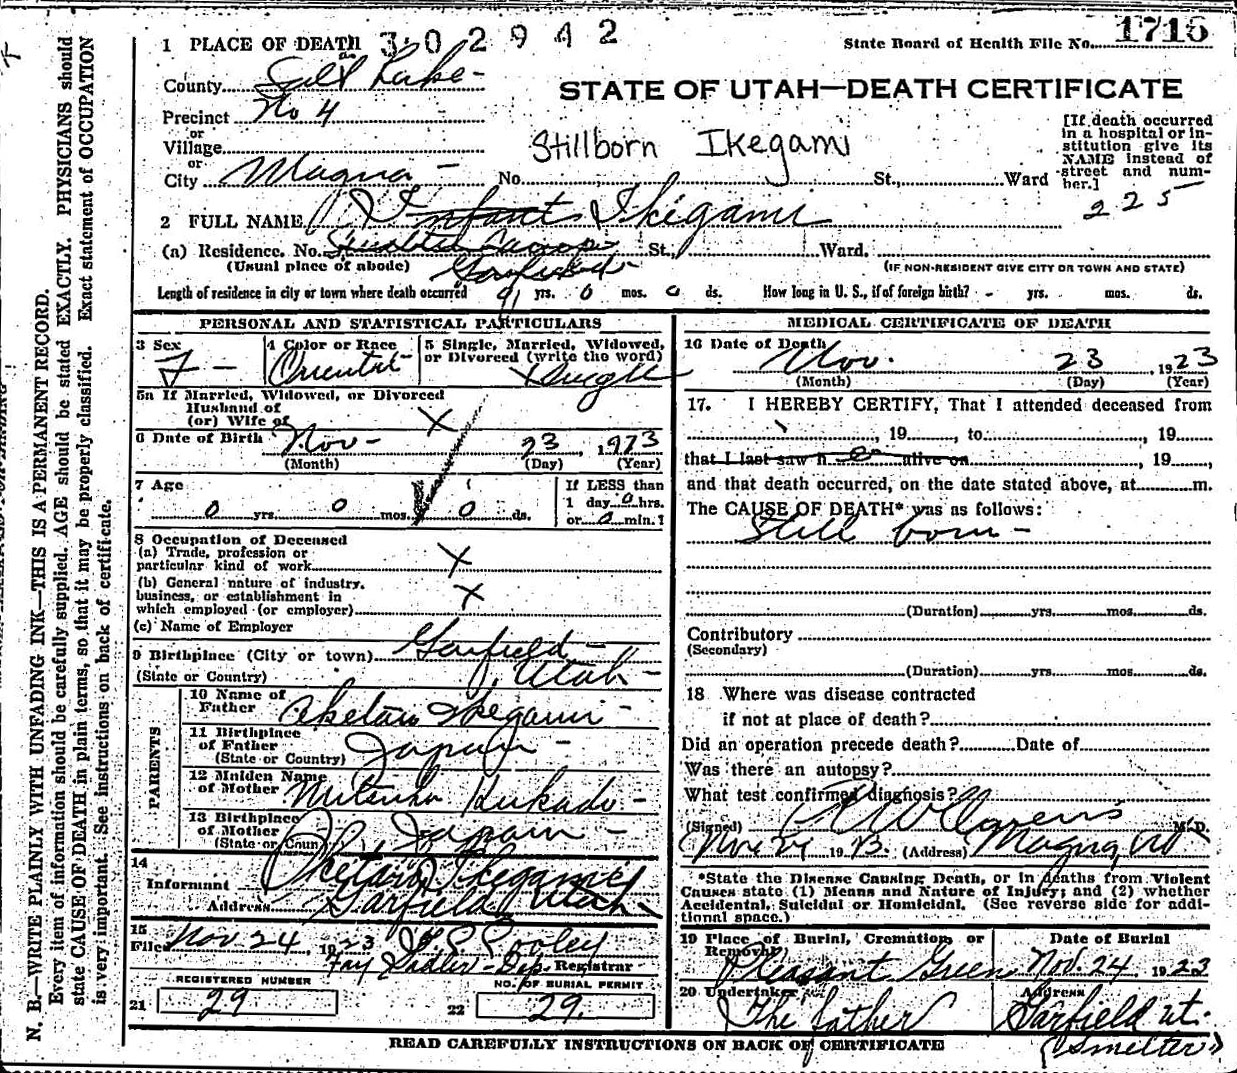 1 PLACE OF DEATH 302942
State Board of Health File No. 1716
County Salt Lake -
STATE OF UTAH—DEATH CERTIFICATE
Precinct No 4
or
Village
or
City Magna - No. St., Ward
Stillborn Ikegami
[If death occurred in a hospital or institution give its NAME instead of street and number.]
225
2 FULL NAME Infant Ikegami
(a) Residence. No. St., Ward.
Garfield
(Usual place of abode) (IF NON-RESIDENT GIVE CITY OR TOWN AND STATE)
Length of residence in city or town where death occurred 0 yrs. 0 mos. 0 ds. How long in U. S., if of foreign birth? - yrs. mos. ds.
PERSONAL AND STATISTICAL PARTICULARS
3 Sex F -
4 Color or Race Oriental -
5 Single, Married, Widowed, or Divorced (write the word) Single
5a If Married, Widowed, or Divorced
Husband of
(or) Wife of X
6 Date of Birth Nov - 23, 1923
(Month) (Day) (Year)
7 Age 0 yrs. 0 mos. 0 ds.
If LESS than
1 day 0 hrs.
or 0 min. ?
8 Occupation of Deceased
(a) Trade, profession or
particular kind of work X
(b) General nature of industry,
business, or establishment in
which employed (or employer) X
(c) Name of Employer
9 Birthplace (City or town) Garfield -
(State or Country) Utah -
PARENTS
10 Name of Father Iketaro Ikegami -
11 Birthplace of Father (State or Country) Japan -
12 Maiden Name of Mother
13 Birthplace of Mother (State or Coun Japan -
14
Informant Iketaro Ikegami
Address Garfield Utah -
15
Filed Nov 24 1923
Dep. Registrar
REGISTERED NUMBER
21 29
NO. OF BURIAL PERMIT
22 29.
MEDICAL CERTIFICATE OF DEATH
16 Date of Death Nov. 23, 1923
(Month) (Day) (Year)
17. I HEREBY CERTIFY, That I attended deceased from
, 19 , to , 19
that I last saw h er alive on , 19 ,
and that death occurred, on the date stated above, at m.
The CAUSE OF DEATH* was as follows:
Still born -
(Duration) yrs. mos. ds.
Contributory
(Secondary)
(Duration) yrs. mos. ds.
18 Where was disease contracted
if not at place of death?
Did an operation precede death? Date of
Was there an autopsy?
What test confirmed diagnosis?
(Signed) M. D.
Nov 24 1923. (Address) Magna, Ut
*State the Disease Causing Death, or in deaths from Violent
Causes state (1) Means and Nature of Injury; and (2) whether
Accidental, Suicidal or Homicidal. (See reverse side for additional space.)
19 Place of Burial, Cremation, or Removal Pleasant Green
Date of Burial Nov. 24, 1923
20 Undertaker The father
Address Garfield ut.
(Smelter)
READ CAREFULLY INSTRUCTIONS ON BACK OF CERTIFICATE
N. B.—WRITE PLAINLY WITH UNFADING INK—THIS IS A PERMANENT RECORD.
Every item of information should be carefully supplied. AGE should be stated EXACTLY. PHYSICIANS should
state CAUSE OF DEATH in plain terms, so that it may be properly classified. Exact statement of OCCUPATION
is very important. See instructions on back of certificate.